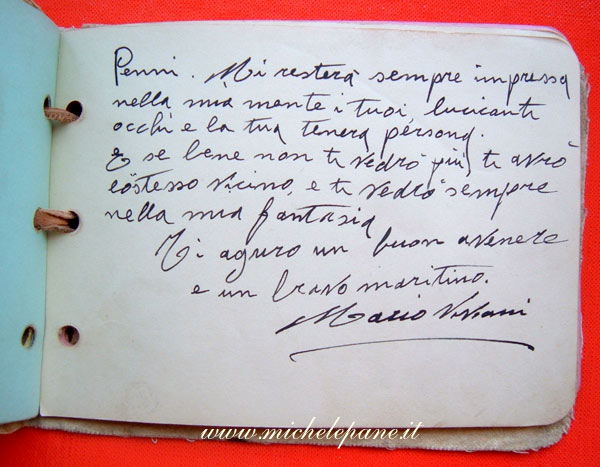 Penni. Mi resterà sempre impressa
nella mia mente i tuoi luccicanti
occhi e la tua tenera persona.
E se bene non ti vedrò più, ti avrò
lostesso vicino, e ti vedrò sempre
nella mia fantasia
Ti aguro un buon avenere
e un bravo maritino.
Mario Viviani
www.michelepane.it